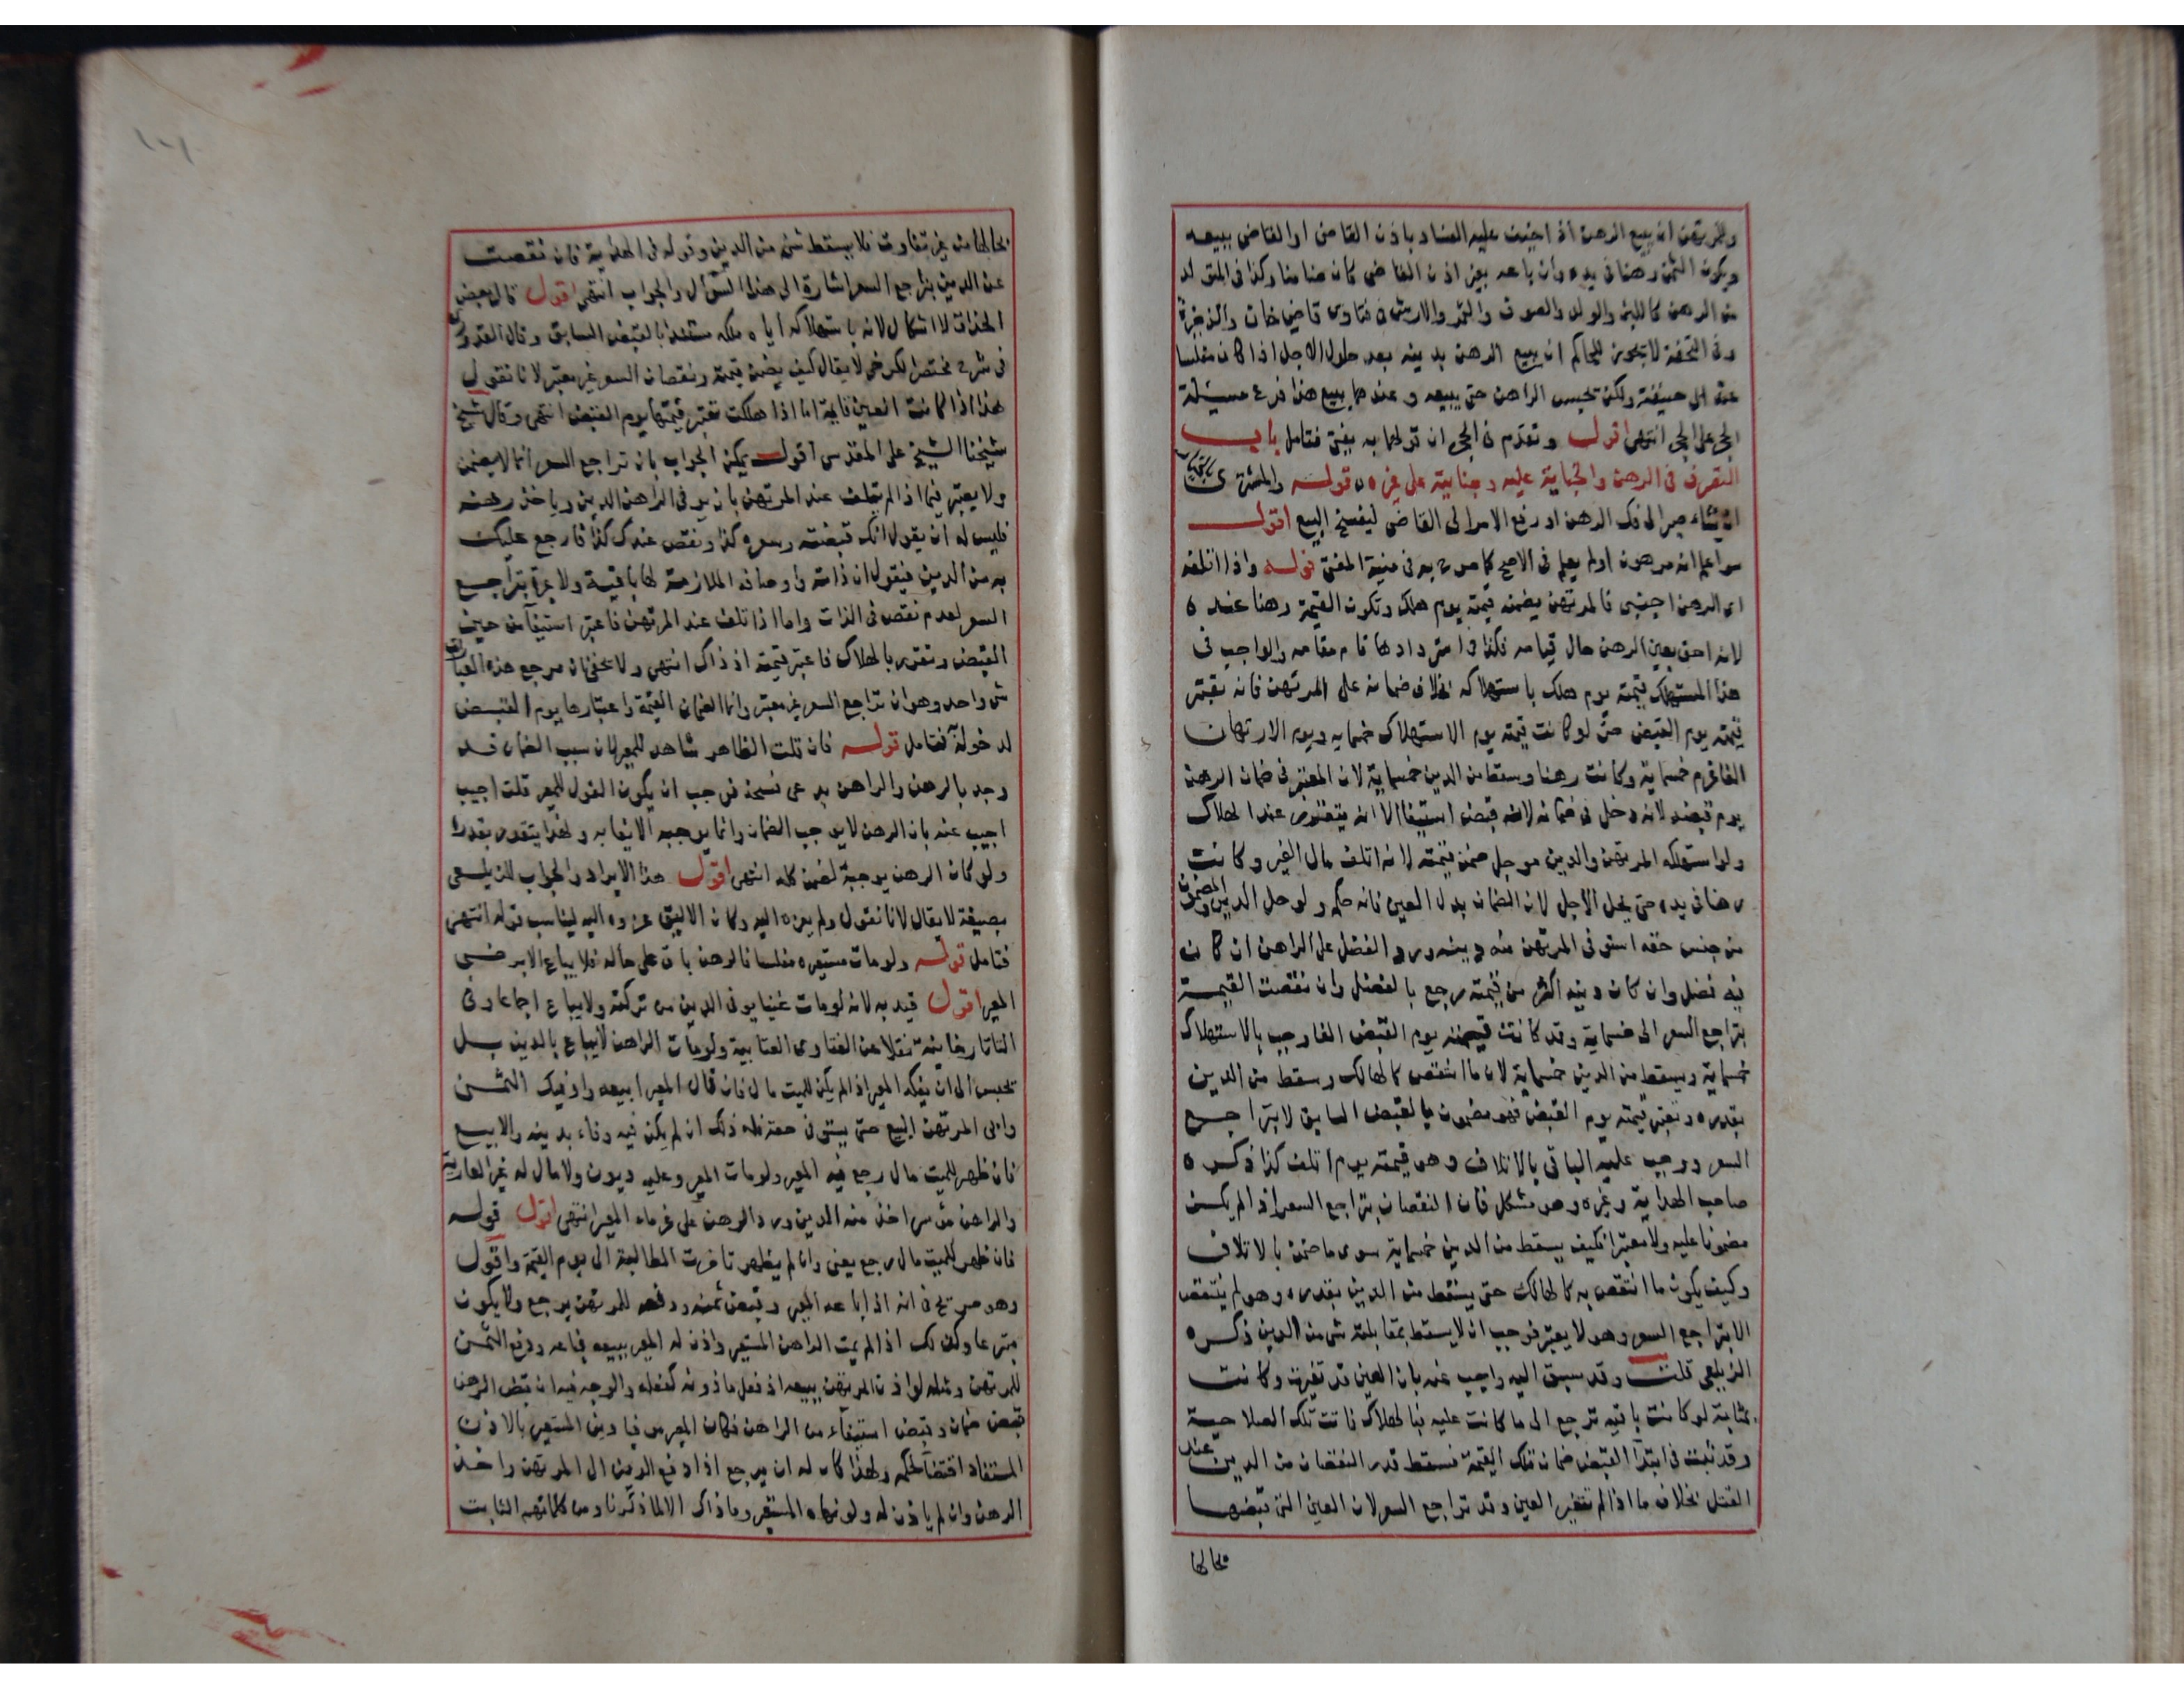 وللمرتهن ان يبيع الرهن اذا خيف عليه الفساد باذن القاضي او القاضي ببيعه
ويكون الثمن رهنا في يده وان باعه بغير اذن القاضي كان ضامنا وكذا في المتولد
من الرهن كاللبن والولد والصوف والثمر والارش ن فتاوى قاضي خان والذخيرة
وفي التحفة لا يجوز للحاكم ان يبيع الرهن بدينه بعد حلول الاجل اذا كان مفلسا
عند ابي حنيفة ولكن يحبس الراهن حتى يبيعه وعندهما يبيع هذا فرع مسيئلة
الحجر على الحر انتهى اقول وتقدم في الحجر ان قولهما به يفتى فتامل باب
التصرف في الرهن والجناية عليه وجنايته على غيره قوله والمشتري
ان شاء صبر الى فك الرهن او رفع الامر الى القاضي ليفسخ البيع اقول
سوا علم انه مرهون او لم يعلم في الاصح كما صرح به في منية المفتي قوله واذا اتلفه
اي الرهن اجنبي فالمرتهن يضمنه قيمته يوم هلك وتكون القيمة رهنا عنده
لانه احق بعين الرهن حال قيامه فكذا في استردادها قام مقامه والواجب في
هذا المستهلك قيمته يوم هلك باستهلاكه بخلاف ضمانه على المرتهن فانه يعتبر
قيمته يوم القبض حتى لو كانت قيمته يوم الاستهلاك خمسمايه ويوم الارتهان
الفا غرم خمسماية وكانت رهنا وسقط من الدين خمسماية لان المعتبر في ضمان الرهن
يوم قبضه لانه دخل في ضمانه لانه قبض استيفا الا انه يتقرر عند الهلاك
ولو استهلكه المرتهن والدين موجل ضمن قيمته لانه اتلف مال الغير وكانت
رهنا في يده حتى يحل الاجل لان الضمان بدل العين فانه حكمه ولو حل الدين والمضمون
من جنس حقه استوفى المرتهن منه دينه ورد الفضل على الراهن ان كان
فيه فضل وان كان دينه اكثر من قيمته رجع بالفضل وان نقصت القيمة
بتراجع السعر الى خمسماية وقد كانت قيمته يوم القبض الفا وجب بالاستهلاك
خمسماية ويسقط من الدين خمسماية لان ما انتقص كالهالك وسقط من الدين
بقدره وتعتبر قيمته يوم القبض فهو مضمون بالقبض السابق لا بتراجع
السعر ووجب عليه الباقي بالاتلاف وهو قيمته يوم اتلف كذا ذكره
صاحب الهداية وغيره وهو مشكل فان النقصان بتراجع السعر اذا لم يكن
مضمونا عليه ولا معتبرا فكيف يسقط من الدين خمسماية سوى ما ضمن بالاتلاف
وكيف يكون ما انتقص به كالهالك حتى يسقط من الدين بقدره وهو لم ينتقص
الا بتراجع السعر وهو لا يعتبر فوجب ان لا يسقط بمقابلته شي من الدين ذكره
الزيلعي قلت وقد سبق اليه واجيب عنه بان العين قد تغيرت وكانت
بمثابة لو كانت باقيه ترجع الى ما كانت عليه فبالهلاك فاتت تلك الصلاحية
وقد ثبت في ابتدا القبض ضمان تلك القيمة فسقط قدر النقصان من الدين عند
القتل بخلاف ما اذا لم تتغير العين وقد تراجع السعر لان العين التي قبضها
بحالها
بحالها من غير تفاوت فلا يسقط شي من الدين وقوله في الهداية فان نقصت
عن الدين بتراجع السعر اشارة الى هذا السوال والجواب انتهى اقول قال بعض
الحذاق لا اشكال لانه باستهلاكه اياه ملكه مستندا بالقبض السابق وقال القدوري
في شرح مختصر الكرخي لا يقال كيف يضمن قيمته ونقصان السعر غير معتبر لانا نقول
هذا اذا كانت العين قايمة اما اذا هلكت تعتبر قيمتها يوم القبض انتهى وقال شيخ
شيخنا الشيخ علي المقدسي اقول يمكن الجواب بان تراجع السعر انما لا يضمن
ولا يعتبر فيما اذا لم يتلف عند المرتهن بان يوفي الراهن الدين وياخذ رهنه
فليس له ان يقول انك قبضته وسعره كذا ونقص عندك كذا فارجع عليك
به من الدين فيقول ان ذاته واوصافه الملازمة لها باقية ولا عبرة بتراجع
السعر لعدم نقص في الذات واما اذا تلف عند المرتهن فاعتبر استيفآ من حين
القبض وتقرر بالهلاك فاعتبر قيمته اذ ذاك انتهى ولا يخفى ان مرجع هذه العبارات
شي واحد وهو ان تراجع السعر غير معتبر وانما الضمان القيمة واعتبارها يوم القبض
لدخوله فتامل قوله فان قلت الظاهر شاهد للمعير لان سبب الضمان قد
وجد بالرهن والراهن يدعى نسخه فوجب ان يكون القول للمعير قلت اجيب
اجيب عنه بان الرهن لا يوجب الضمان وانما يوجبه الايفا به ولهذا يتقدر بقدره
ولو كان الرهن يوجبه لضمن كله انتهى اقول هذا الايراد والجواب للزيلعي
بصيغة لا يقال لانا نقول ولم يعزه اليه وكان الاليق عزوه اليه ليناسب قوله انتهى
فتامل قوله ولو مات مستعيره مفلسا فالرهن باق على حاله فلا يباع الا برضى
المعير اقول قيد به لانه لو مات غنيا يوفى الدين من تركته ولا يباع اجماعا وفي
التاتارخانية نقلا عن الفتاوى العتابية ولو مات الراهن لا يباع بالدين بل
يحبس الى ان يفكه المعير اذا لم يكن للميت مال فان قال المعير ابيعه واوفيك الثمن
وابى المرتهن البيع حتى يستوفي حقه فله ذلك ان لم يكن فيه وفاء بدينه والا بيع
فان ظهر للميت مال رجع فيه المعير ولو مات المعير وعليه ديون ولا مال له غير العارية
والراهن موسر اخذ منه الدين ورد الرهن على غرماء المعير انتهى اقول قوله
فان ظهر للميت مال رجع يعني وان لم يظهر تاخرت المطالبة الى يوم القيمة واقول
وهو صريح في انه اذا باعه المعير وقبض ثمنه ودفعه للمرتهن يرجع ولا يكون
متبرعا وكذلك اذا لم يمت الراهن المستعير واذن له المعير ببيعه فباعه ودفع الثمن
للمرتهن ومثله لو اذن المرتهن ببيعه اذ فعل ماذونه كفعله والوجه فيه ان قبض الرهن
قبض ضمان وقبض استيفآء من الراهن فكان المعير موفيا دين المستعير بالاذن
المستفاد اقتضا لحكمه ولهذا كان له ان يرجع اذا دفع الدين الى المرتهن واخذ
الرهن وان لم ياذن له ولو نهاه المستعير وما ذاك الا لما ذكرنا ومن كلماتهم الثابت